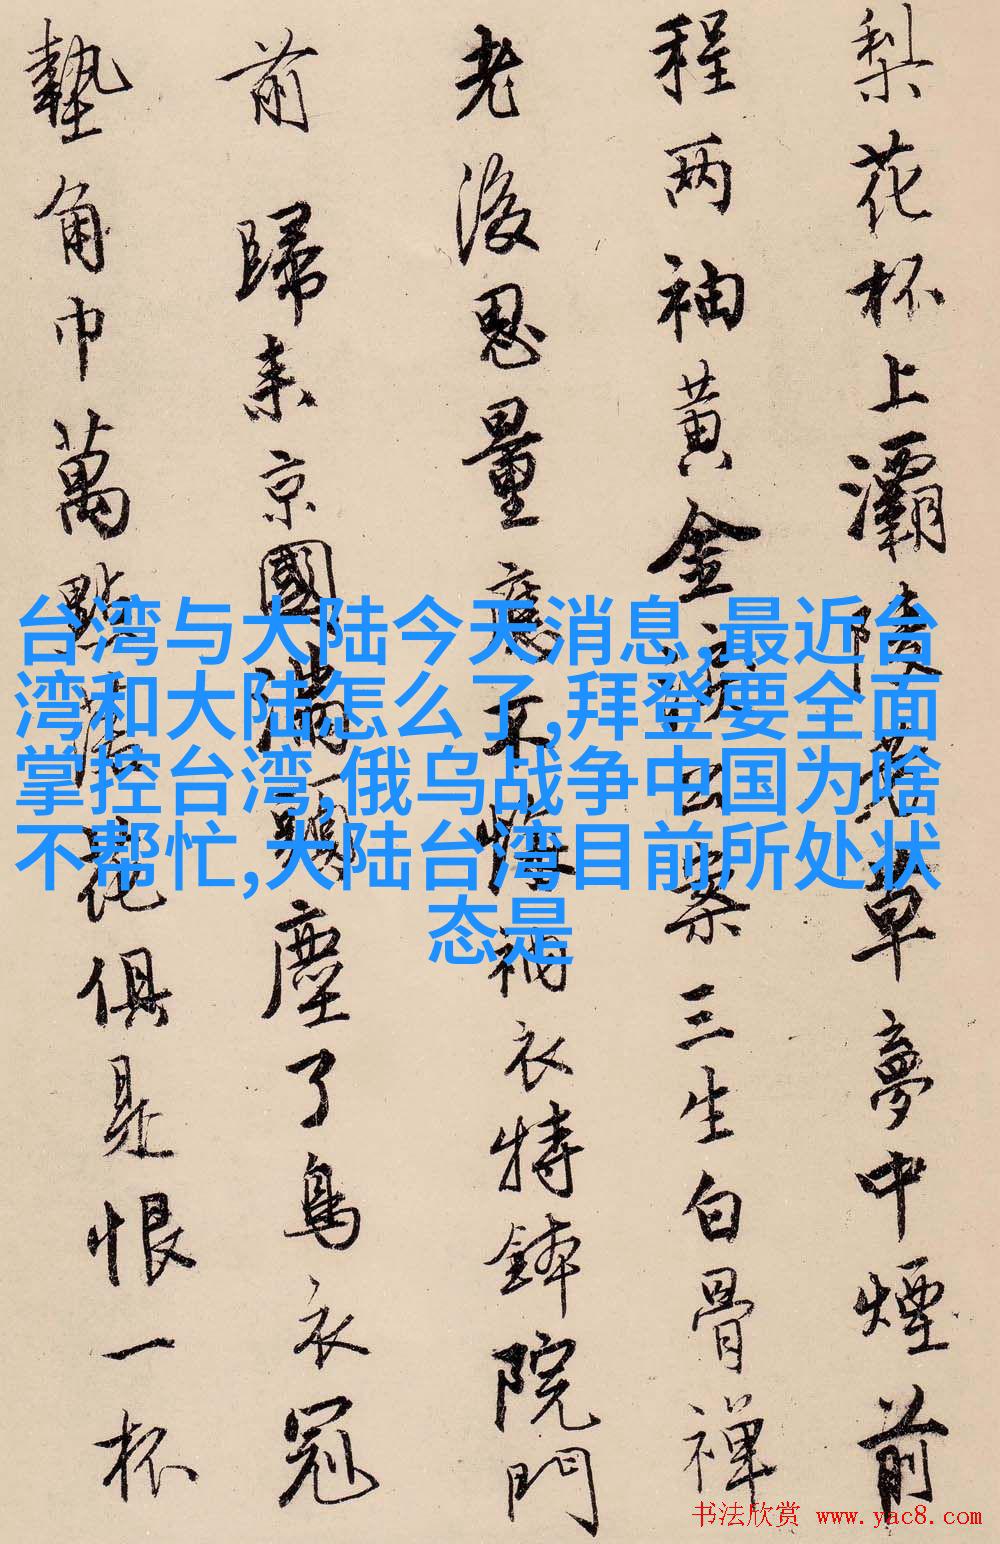 梨花杯上灞陵芳草夢中煙前
程两袖黃金淚公案三生白骨禪
老後思量應不悔衲衣持鉢院門
前 歸来京國滿頭塵了烏衣冠
墊角巾萬點落花俱是恨一杯
台湾与大陆今天消息,最近台
湾和大陆怎么了,拜登要全面
掌控台湾,俄乌战争中国为啥
不帮忙,大陆台湾目前所处状
态是
书法欣赏 www.yac8.com